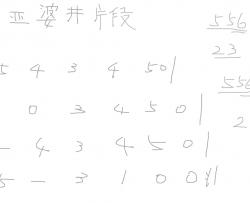 亚婆井片段
5 4 3 4 50|
0 3 4 5 0|
- 4 3 4 5 0|
5 - 3 1 0 0||
556
23
556
2